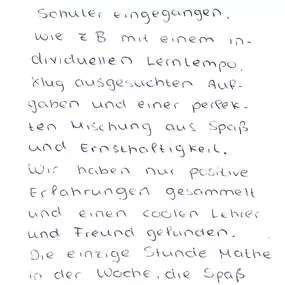 Schüler eingegangen,
wie z B mit einem in-
dividuellen Lerntempo,
klug ausgesuchten Auf-
gaben und einer perfek-
ten Mischung aus Spaß
und Ernsthaftigkeit.
Wir haben nur positive
Erfahrungen gesammelt
und einen coolen Lehrer
und Freund gefunden.
Die einzige Stunde Mathe
in der Woche, die Spaß